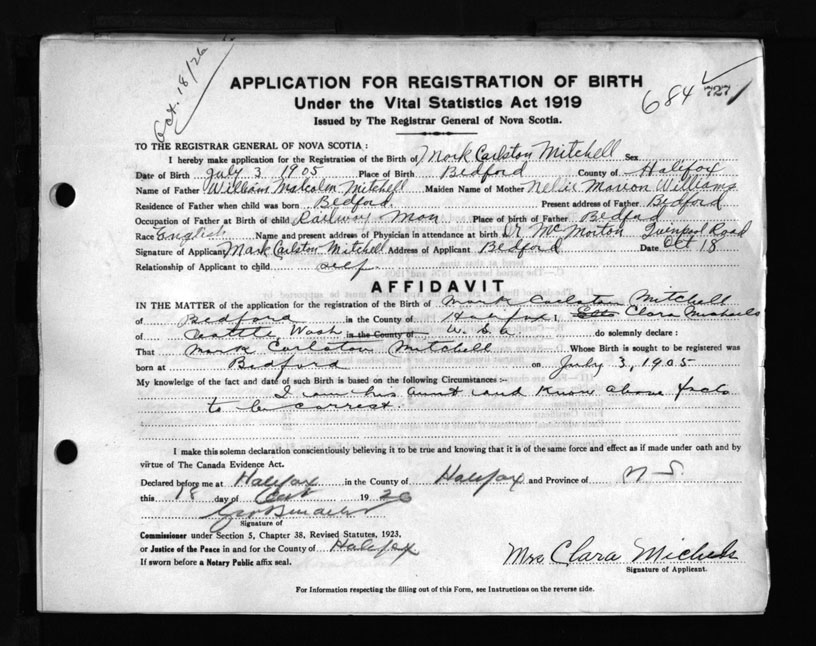 Oct. 18/26
APPLICATION FOR REGISTRATION OF BIRTH
Under the Vital Statistics Act 1919
684 727
Issued by The Registrar General of Nova Scotia.
TO THE REGISTRAR GENERAL OF NOVA SCOTIA :
I hereby make application for the Registration of the Birth of Mark Carlston Mitchell Sex
Date of Birth July 3 1905 Place of Birth Bedford County of Halifax
Name of Father William Malcolm Mitchell Maiden Name of Mother Nellie Marion Williams
Residence of Father when child was born Bedford. Present address of Father Bedford
Occupation of Father at Birth of child Railway Man Place of birth of Father Bedford
Race English Name and present address of Physician in attendance at birth Dr McMorton Road
Signature of Applicant Mark Carlston Mitchell Address of Applicant Bedford Date Oct 18
Relationship of Applicant to child self
AFFIDAVIT
IN THE MATTER of the application for the registration of the Birth of Mark Carlston Mitchell
of Bedford in the County of Halifax I, Clara Michaels
of Seattle Wash in the County of U.S.A do solemnly declare :
That Mark Carlston Mitchell Whose Birth is sought to be registered was
born at Bedford on July 3, 1905
My knowledge of the fact and date of such Birth is based on the following Circumstances :-
I am his aunt and know above facts
to be correct.
I make this solemn declaration conscientiously believing it to be true and knowing that it is of the same force and effect as if made under oath and by
virtue of The Canada Evidence Act.
Declared before me at Halifax in the County of Halifax and Province of N. S.
this 18 day of Oct 1926
Signature of
Commissioner under Section 5, Chapter 38, Revised Statutes, 1923.
or Justice of the Peace in and for the County of Halifax
If sworn before a Notary Public affix seal.
Mrs Clara Michaels
Signature of Applicant.
For Information respecting the filling out of this Form, see Instructions on the reverse side.